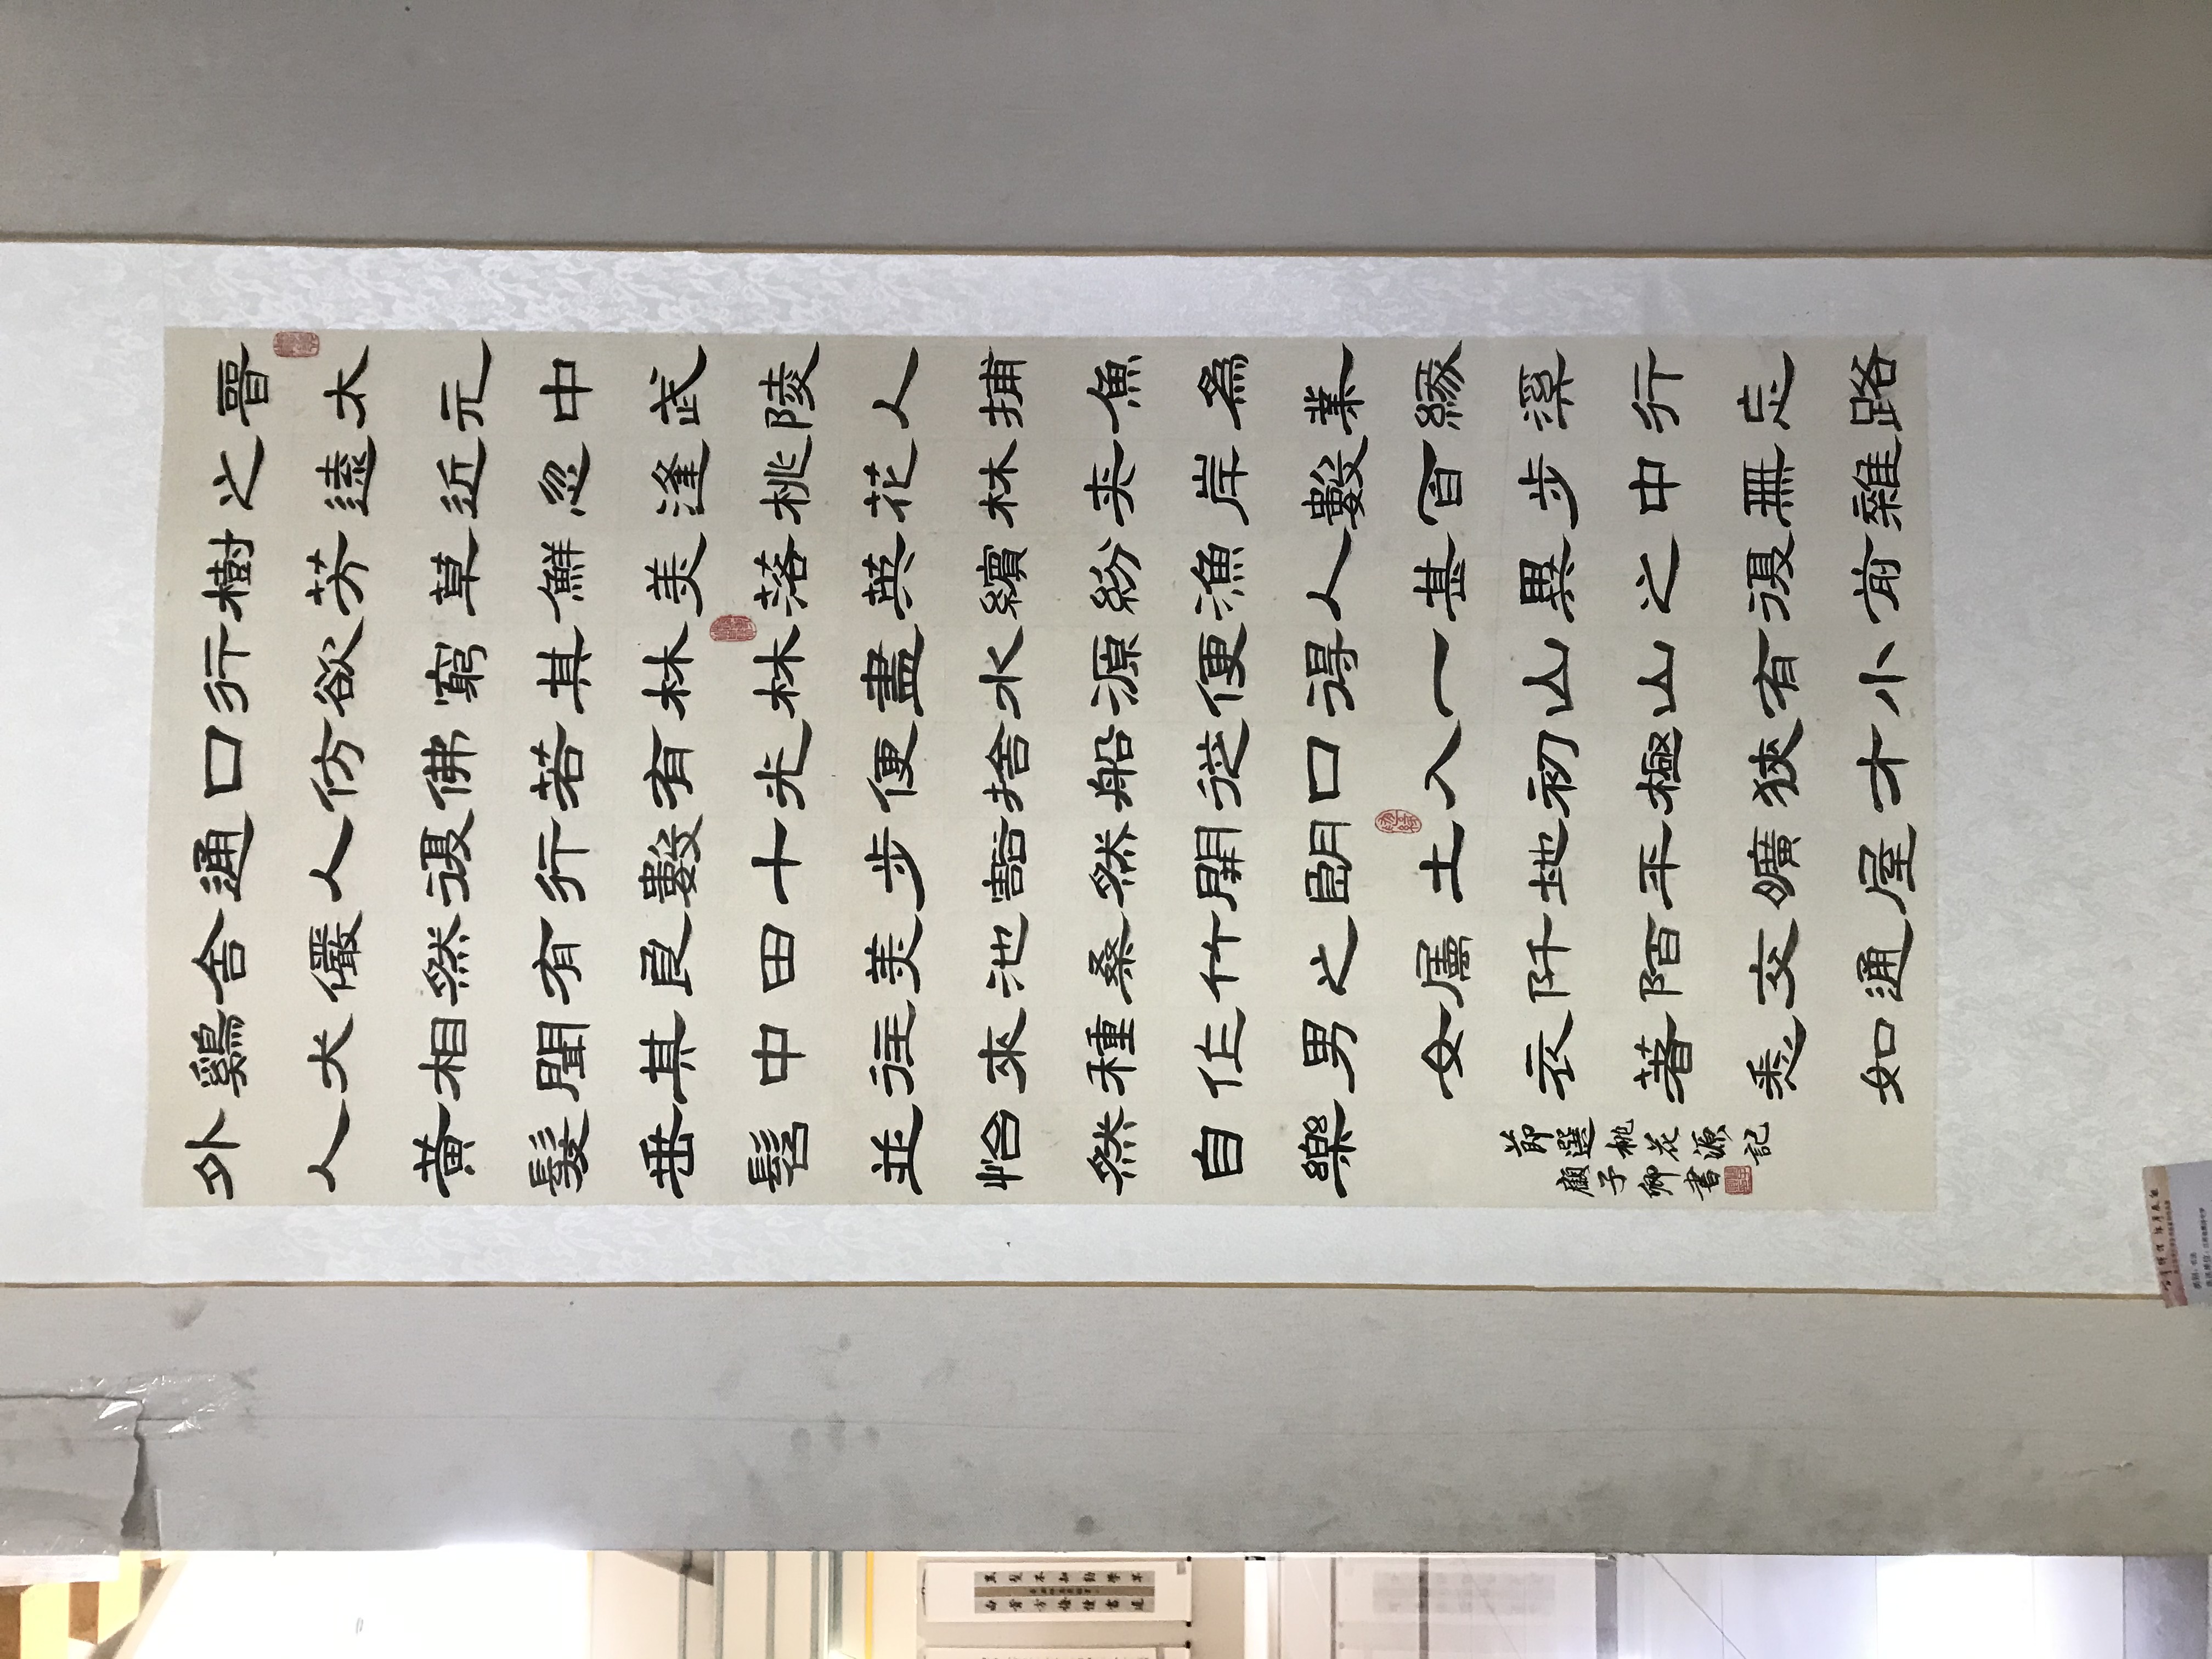 晉太元中武陵人捕魚為業緣溪行忘路
之遠近忽逢桃花林夾岸數百步中無雜
樹芳草鮮美落英繽紛漁人甚異之復前
行欲窮其林林盡水源便得一山山有小
口仿佛若有光便捨船從口入初極狹才
通人復行數十步豁然開朗土地平曠屋
舍儼然有良田美池桑竹之屬阡陌交通
鷄犬相聞其中往來種作男女衣著悉如
外人黃髮垂髫並怡然自樂
節選桃花源記
顧子卿書
黑髮不知勤學早
白首方悔讀書遲